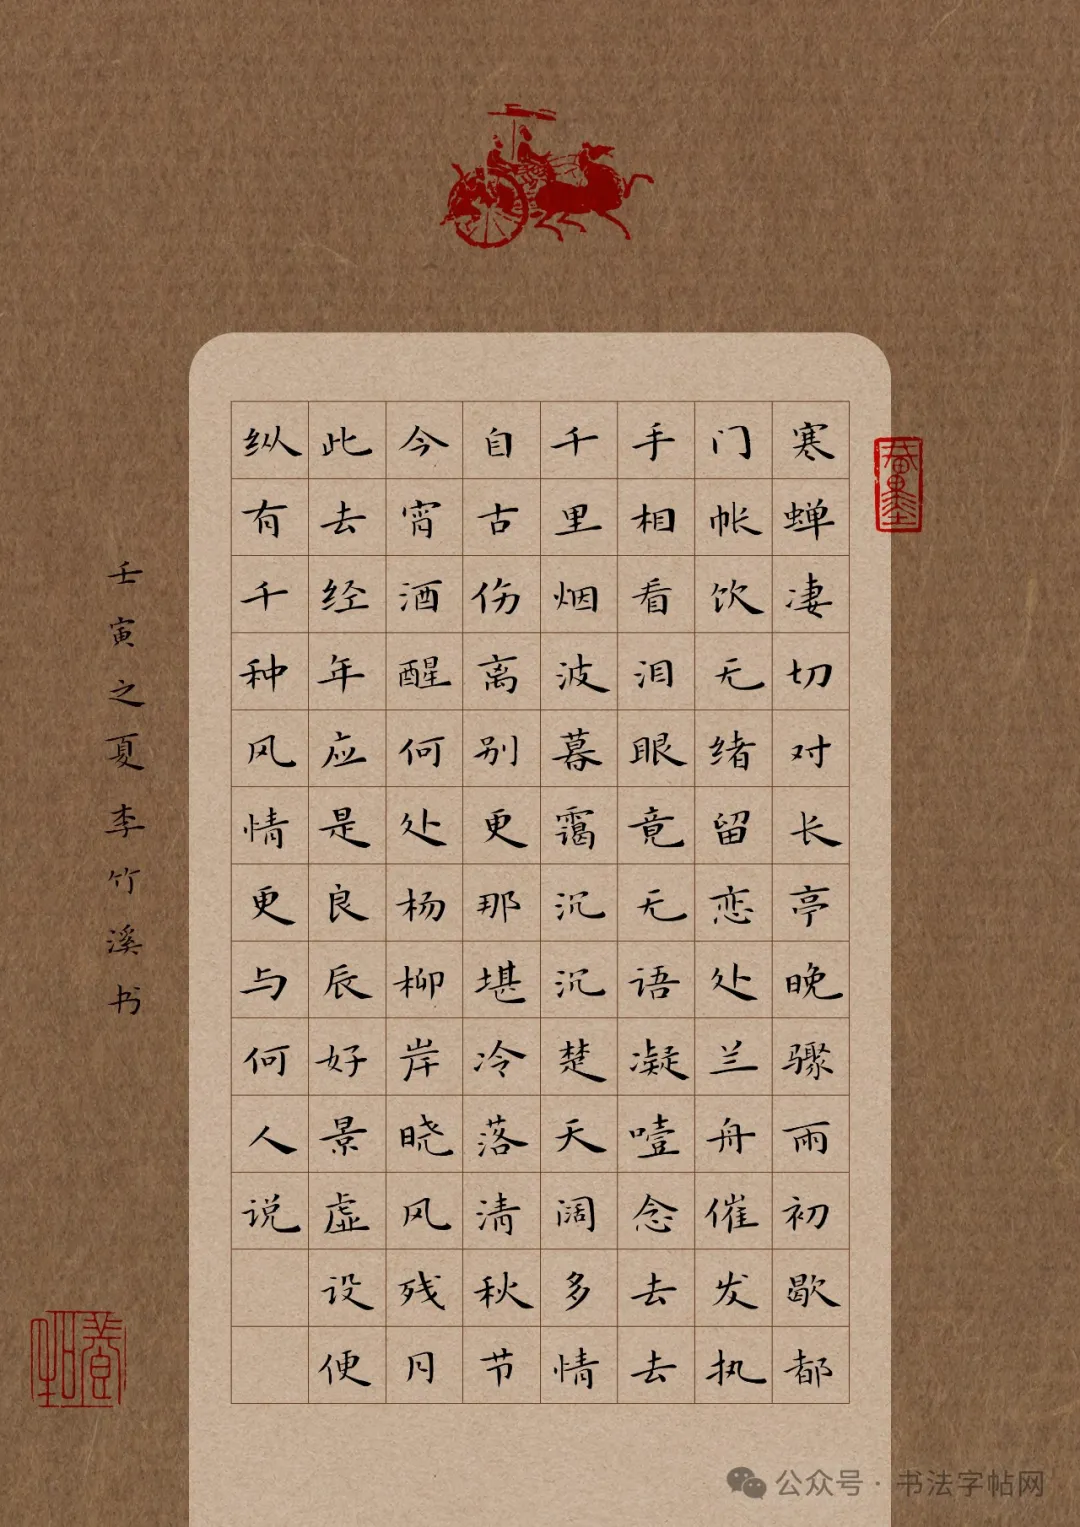 寒蝉凄切对长亭晚骤雨初歇都
门帐饮无绪留恋处兰舟催发执
手相看泪眼竟无语凝噎念去去
千里烟波暮霭沉沉楚天阔多情
自古伤离别更那堪冷落清秋节
今宵酒醒何处杨柳岸晓风残月
此去经年应是良辰好景虚设便
纵有千种风情更与何人说
壬寅之夏李竹溪书
公众号 · 书法字帖网